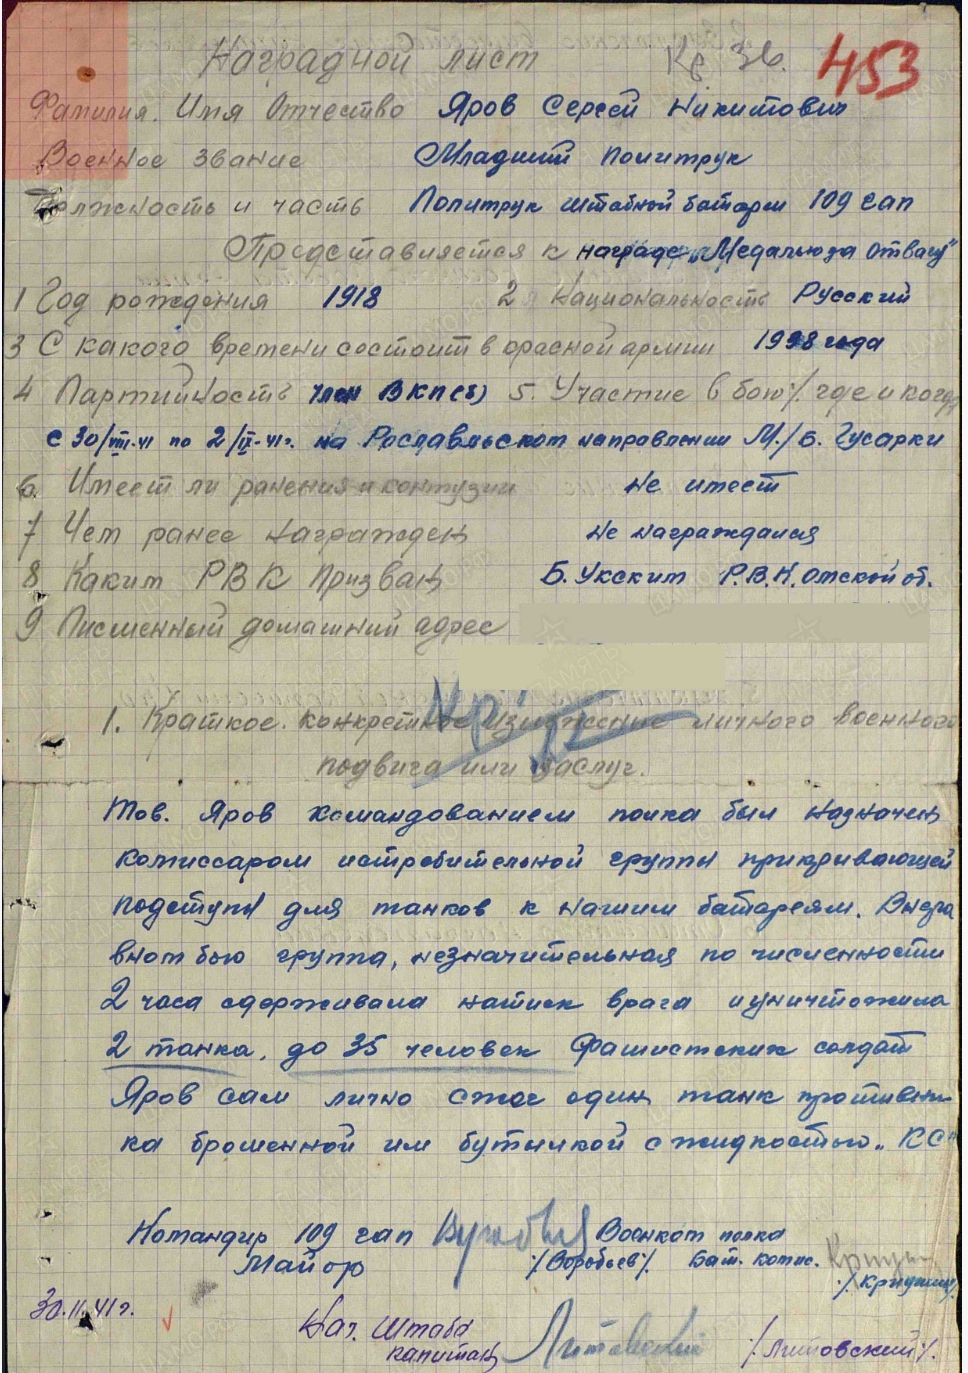 Наградной лист Кр Зв. 453
Фамилия. Имя Отчество Яров Сергей Никитович
Военное звание Младший политрук
Должность и часть Политрук штабной батареи 109 гап
Представляется к награде „Медалью за отвагу"
1 Год рождения 1918 2 Национальность Русский
3 С какого времени состоит в красной армии 1938 года
4 Партийность член ВКП(б) 5. Участие в бою/ где и когда
с 30/VIII-41 по 2/IX-41г. на Рославльском направлении М./Б. Гусарки
6. Имеет ли ранения и контузии не имеет
7 Чем ранее награжден не награждался
8 Каким РВК призван Б. Укским Р.В.К. Омской об.
9 Писменный домашний адрес
1. Краткое конкретное изложение личного военного
подвига или заслуг.
Тов. Яров командованием полка был назначен
комиссаром истребительной группы прикрывающей
подступы для танков к нашим батареям. В нера
вном бою группа, незначительная по численности
2 часа сдерживала натиск врага и уничтожила
2 танка, до 35 человек фашистских солдат
Яров сам лично сжог один танк противни-
ка брошенной им бутылкой с жидкостью „КС"
Командир 109 гап Военком полка
Майор /Воробьев/ Бат. комис.
30.11.41г. Нач. Штаба
капитан Литовский /Литовский/.